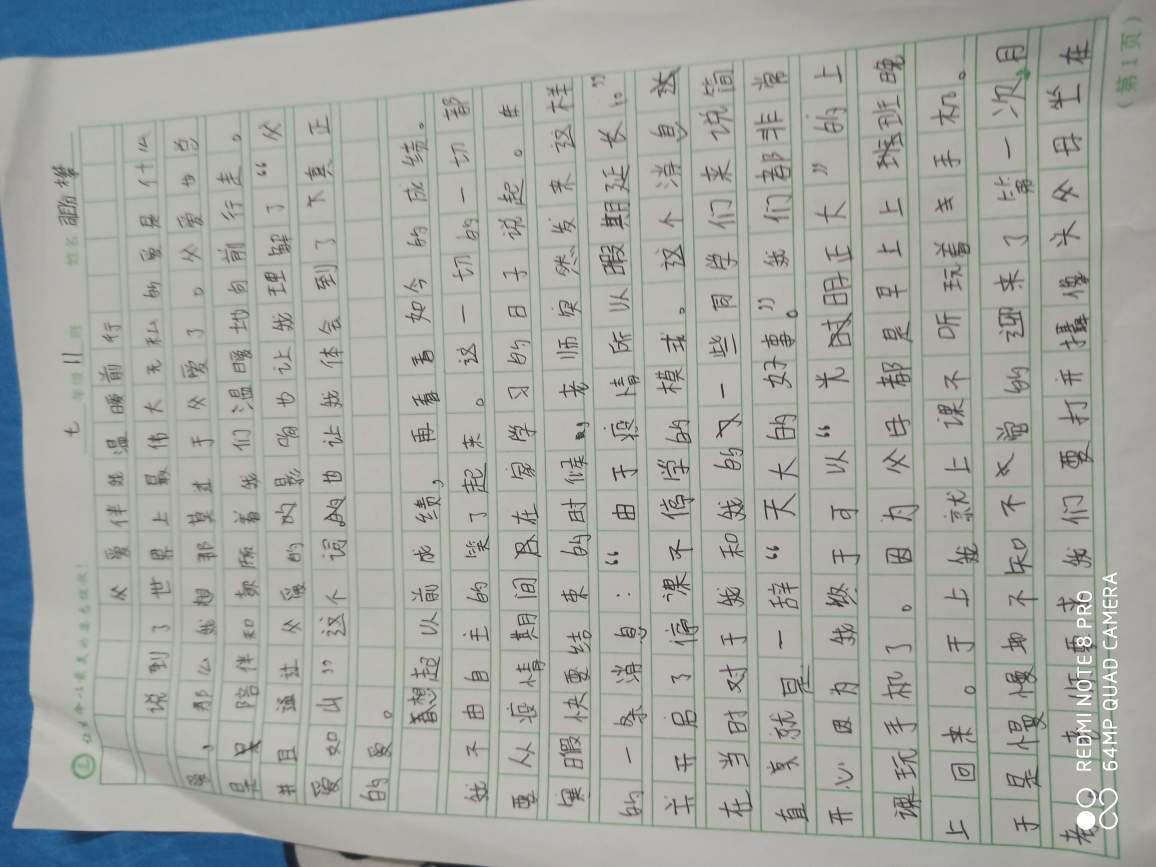 七年级 11 班 姓名
父爱伴我温暖前行
说到了世界上最伟大无私的爱是什么
爱,那么我想那莫过于父爱了。父爱也
是 陪伴和 着我们温暖地向前行走。
并且通过父爱的的影响也让我理解了“父
爱如山”这个词 也让我体会到了 真正
的爱。
想起以前成绩,再看看如今的成绩。
我不由自主的笑了起来。这一切的一切都
要从疫情期间居在家学习的日子说起。在
寒暇快要结束的时候,老师突然发来这样
的一条消息:“由于疫情所以暇期延长”
并开启了停课不停学的模式。这个消息这
在当时对于我和我的 一些同学们来说简
直真就是一辞“天大的好事”。我们都非常
开心因为我终于可以“光明正大”的上
课玩手机了。因为父母都是早上上 班晚
上回来。于上我就上课不听玩着 手机。
于是慢慢地不知不觉的迎来了第一次月
老师要求我们要打开摄像头父母坐在
(第1页)
REDMI NOTE 8 PRO
64MP QUAD CAMERA